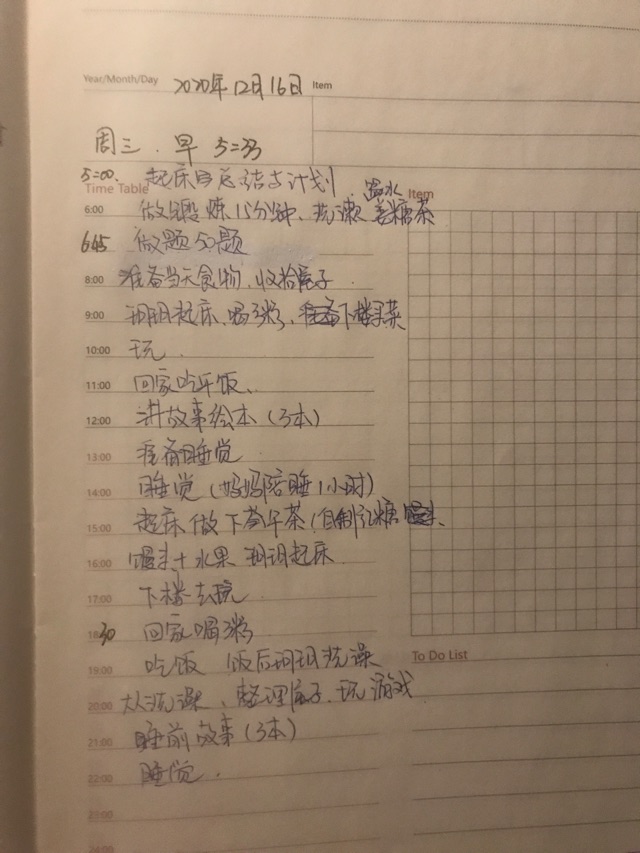 Year/Month/Day 2020年12月16日 Item
周三.早 5:33
5:00. 起床 总结与计划. 温水
Time Table Item
6:00 做锻炼15分钟、洗漱 姜糖茶
6:45 做题50题
8:00 准备当天食物,收拾屋子.
9:00 玥玥起床、喝粥、准备下楼买菜
10:00 玩.
11:00 回家吃午饭、
12:00 讲故事绘本(3本)
13:00 准备睡觉
14:00 睡觉(妈妈陪睡1小时)
15:00 起床做下午茶(自制红糖
16:00 馒头+水果 玥玥起床
17:00 下楼去玩
18:30 回家喝粥
19:00 吃饭 饭后玥玥洗澡
To Do List
20:00 大人洗澡、整理屋子.玩游戏
21:00 睡前故事(3本)
22:00 睡觉.
23:00
24:00